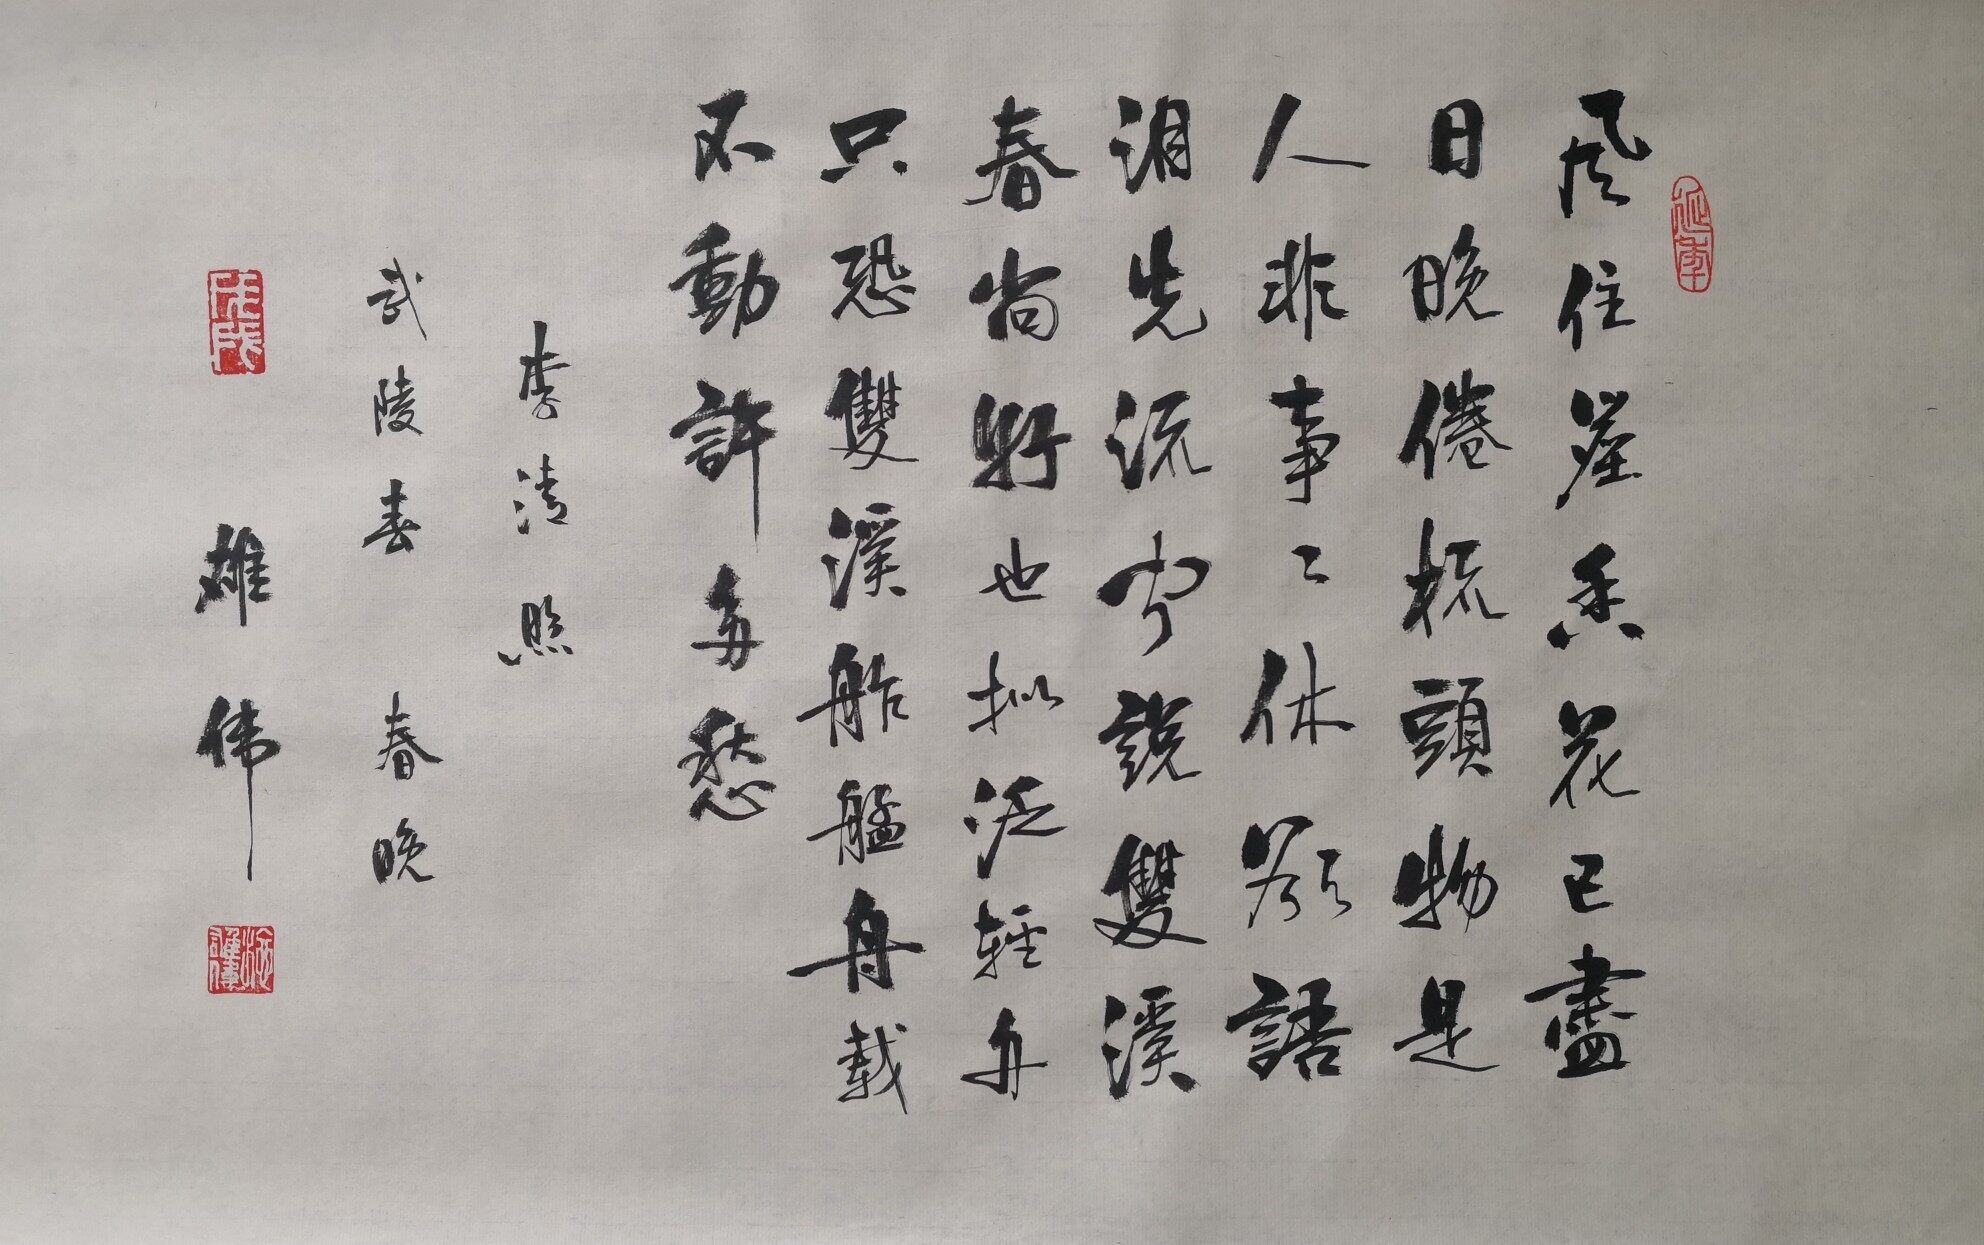 延年
风住塵香花已盡
日晚倦梳頭物是
人非事〻休欲語
泪先流闻說雙溪
春尚好也拟泛輕舟
只恐雙溪舴艋舟載
不動許多愁
李清照
武陵春 春晚
戊戌
雄伟